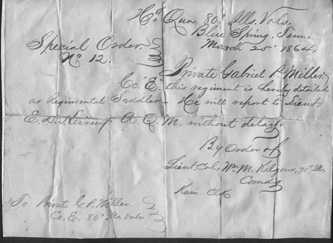 Hd Qrs 80th Ills. Vols.
Blue Spring, Tenn.
March 25th 1864
Special Order
No 12.
Private Gabriel P. Miller
Co. E. this regiment is hereby detailed
as Regimental Saddler. He will report to Lieut
E. Q. M. without delay
By Order of
Lieut Col. Wm M. Kilgour, 80th Ills
Comdg
To Privt G. P. Miller
Co. E. 80th Ills Vols